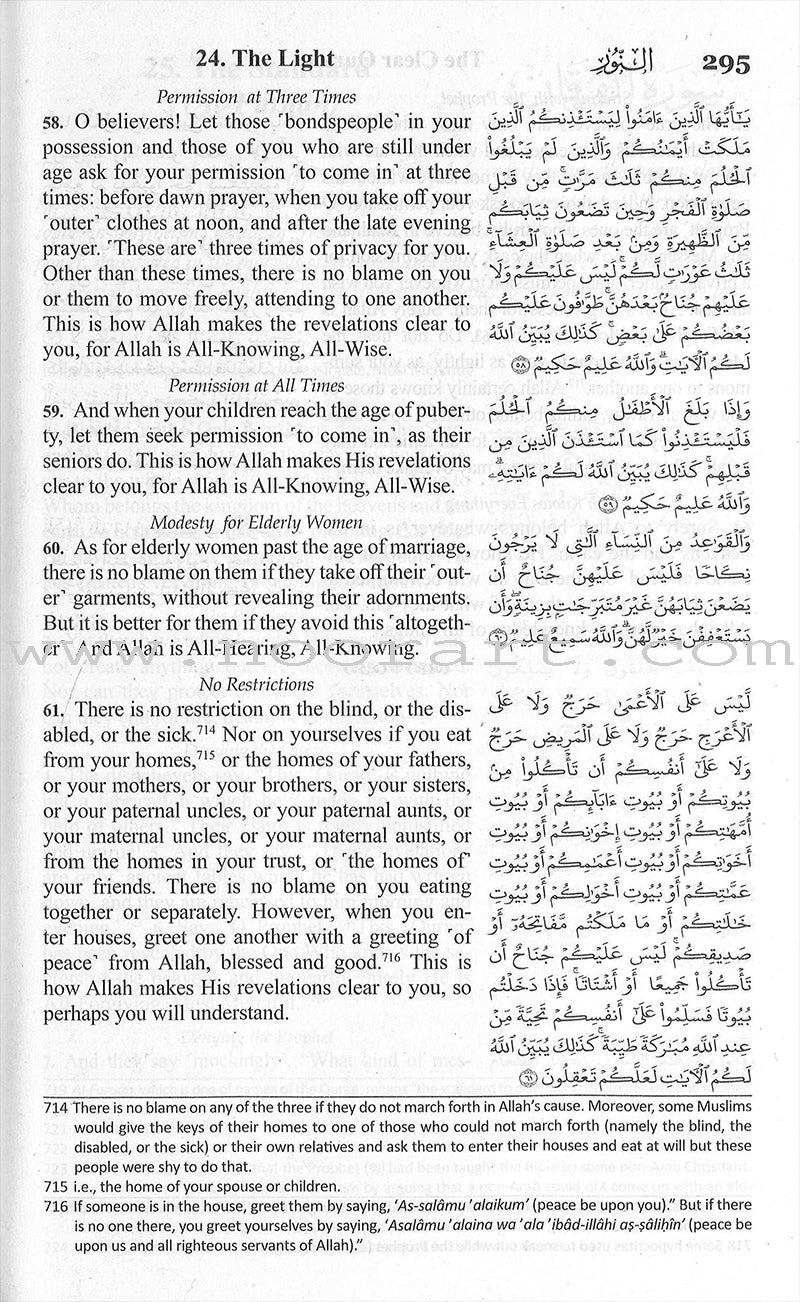 24. The Light
النُّور
295
Permission at Three Times
58. O believers! Let those ˹bondspeople˺ in your
possession and those of you who are still under
age ask for your permission ˹to come in˺ at three
times: before dawn prayer, when you take off your
˹outer˺ clothes at noon, and after the late evening
prayer. ˹These are˺ three times of privacy for you.
Other than these times, there is no blame on you
or them to move freely, attending to one another.
This is how Allah makes the revelations clear to
you, for Allah is All-Knowing, All-Wise.
Permission at All Times
59. And when your children reach the age of puber-
ty, let them seek permission ˹to come in˺, as their
seniors do. This is how Allah makes His revelations
clear to you, for Allah is All-Knowing, All-Wise.
Modesty for Elderly Women
60. As for elderly women past the age of marriage,
there is no blame on them if they take off their ˹out-
er˺ garments, without revealing their adornments.
But it is better for them if they avoid this ˹altogeth-
er˺. And Allah is All-Hearing, All-Knowing.
No Restrictions
61. There is no restriction on the blind, or the dis-
abled, or the sick.714 Nor on yourselves if you eat
from your homes,715 or the homes of your fathers,
or your mothers, or your brothers, or your sisters,
or your paternal uncles, or your paternal aunts, or
your maternal uncles, or your maternal aunts, or
from the homes in your trust, or ˹the homes of˺
your friends. There is no blame on you eating
together or separately. However, when you en-
ter houses, greet one another with a greeting ˹of
peace˺ from Allah, blessed and good.716 This is
how Allah makes His revelations clear to you, so
perhaps you will understand.
يَـٰٓأَيُّهَا ٱلَّذِينَ ءَامَنُوا۟ لِيَسْتَـْٔذِنكُمُ ٱلَّذِينَ
مَلَكَتْ أَيْمَـٰنُكُمْ وَٱلَّذِينَ لَمْ يَبْلُغُوا۟
ٱلْحُلُمَ مِنكُمْ ثَلَـٰثَ مَرَّٰتٍ ۚ مِّن قَبْلِ
صَلَوٰةِ ٱلْفَجْرِ وَحِينَ تَضَعُونَ ثِيَابَكُم
مِّنَ ٱلظَّهِيرَةِ وَمِنۢ بَعْدِ صَلَوٰةِ ٱلْعِشَآءِ ۚ
ثَلَـٰثُ عَوْرَٰتٍ لَّكُمْ ۚ لَيْسَ عَلَيْكُمْ وَلَا
عَلَيْهِمْ جُنَاحٌۢ بَعْدَهُنَّ ۚ طَوَّٰفُونَ عَلَيْكُم
بَعْضُكُمْ عَلَىٰ بَعْضٍ ۚ كَذَٰلِكَ يُبَيِّنُ ٱللَّهُ
لَكُمُ ٱلْـَٔايَـٰتِ ۗ وَٱللَّهُ عَلِيمٌ حَكِيمٌ ٥٨
وَإِذَا بَلَغَ ٱلْأَطْفَـٰلُ مِنكُمُ ٱلْحُلُمَ
فَلْيَسْتَـْٔذِنُوا۟ كَمَا ٱسْتَـْٔذَنَ ٱلَّذِينَ مِن
قَبْلِهِمْ ۚ كَذَٰلِكَ يُبَيِّنُ ٱللَّهُ لَكُمْ ءَايَـٰتِهِۦ ۗ
وَٱللَّهُ عَلِيمٌ حَكِيمٌ ٥٩
وَٱلْقَوَٰعِدُ مِنَ ٱلنِّسَآءِ ٱلَّـٰتِى لَا يَرْجُونَ
نِكَاحًا فَلَيْسَ عَلَيْهِنَّ جُنَاحٌ أَن
يَضَعْنَ ثِيَابَهُنَّ غَيْرَ مُتَبَرِّجَـٰتٍۭ بِزِينَةٍ ۖ وَأَن
يَسْتَعْفِفْنَ خَيْرٌ لَّهُنَّ ۗ وَٱللَّهُ سَمِيعٌ عَلِيمٌ ٦٠
لَّيْسَ عَلَى ٱلْأَعْمَىٰ حَرَجٌ وَلَا عَلَى
ٱلْأَعْرَجِ حَرَجٌ وَلَا عَلَى ٱلْمَرِيضِ حَرَجٌ
وَلَا عَلَىٰٓ أَنفُسِكُمْ أَن تَأْكُلُوا۟ مِنۢ
بُيُوتِكُمْ أَوْ بُيُوتِ ءَابَآئِكُمْ أَوْ بُيُوتِ
أُمَّهَـٰتِكُمْ أَوْ بُيُوتِ إِخْوَٰنِكُمْ أَوْ بُيُوتِ
أَخَوَٰتِكُمْ أَوْ بُيُوتِ أَعْمَـٰمِكُمْ أَوْ بُيُوتِ
عَمَّـٰتِكُمْ أَوْ بُيُوتِ أَخْوَٰلِكُمْ أَوْ بُيُوتِ
خَـٰلَـٰتِكُمْ أَوْ مَا مَلَكْتُم مَّفَاتِحَهُۥٓ أَوْ
صَدِيقِكُمْ ۚ لَيْسَ عَلَيْكُمْ جُنَاحٌ أَن
تَأْكُلُوا۟ جَمِيعًا أَوْ أَشْتَاتًا ۚ فَإِذَا دَخَلْتُم
بُيُوتًا فَسَلِّمُوا۟ عَلَىٰٓ أَنفُسِكُمْ تَحِيَّةً مِّنْ
عِندِ ٱللَّهِ مُبَـٰرَكَةً طَيِّبَةً ۚ كَذَٰلِكَ يُبَيِّنُ ٱللَّهُ
لَكُمُ ٱلْـَٔايَـٰتِ لَعَلَّكُمْ تَعْقِلُونَ ٦١
www.noorart.com
714 There is no blame on any of the three if they do not march forth in Allah's cause. Moreover, some Muslims
would give the keys of their homes to one of those who could not march forth (namely the blind, the
disabled, or the sick) or their own relatives and ask them to enter their houses and eat at will but these
people were shy to do that.
715 i.e., the home of your spouse or children.
716 If someone is in the house, greet them by saying, 'As-salâmu 'alaikum' (peace be upon you)." But if there
is no one there, you greet yourselves by saying, 'Asalâmu 'alaina wa 'ala 'ibâd-illâhi aṣ-ṣâliḥîn' (peace be
upon us and all righteous servants of Allah)."